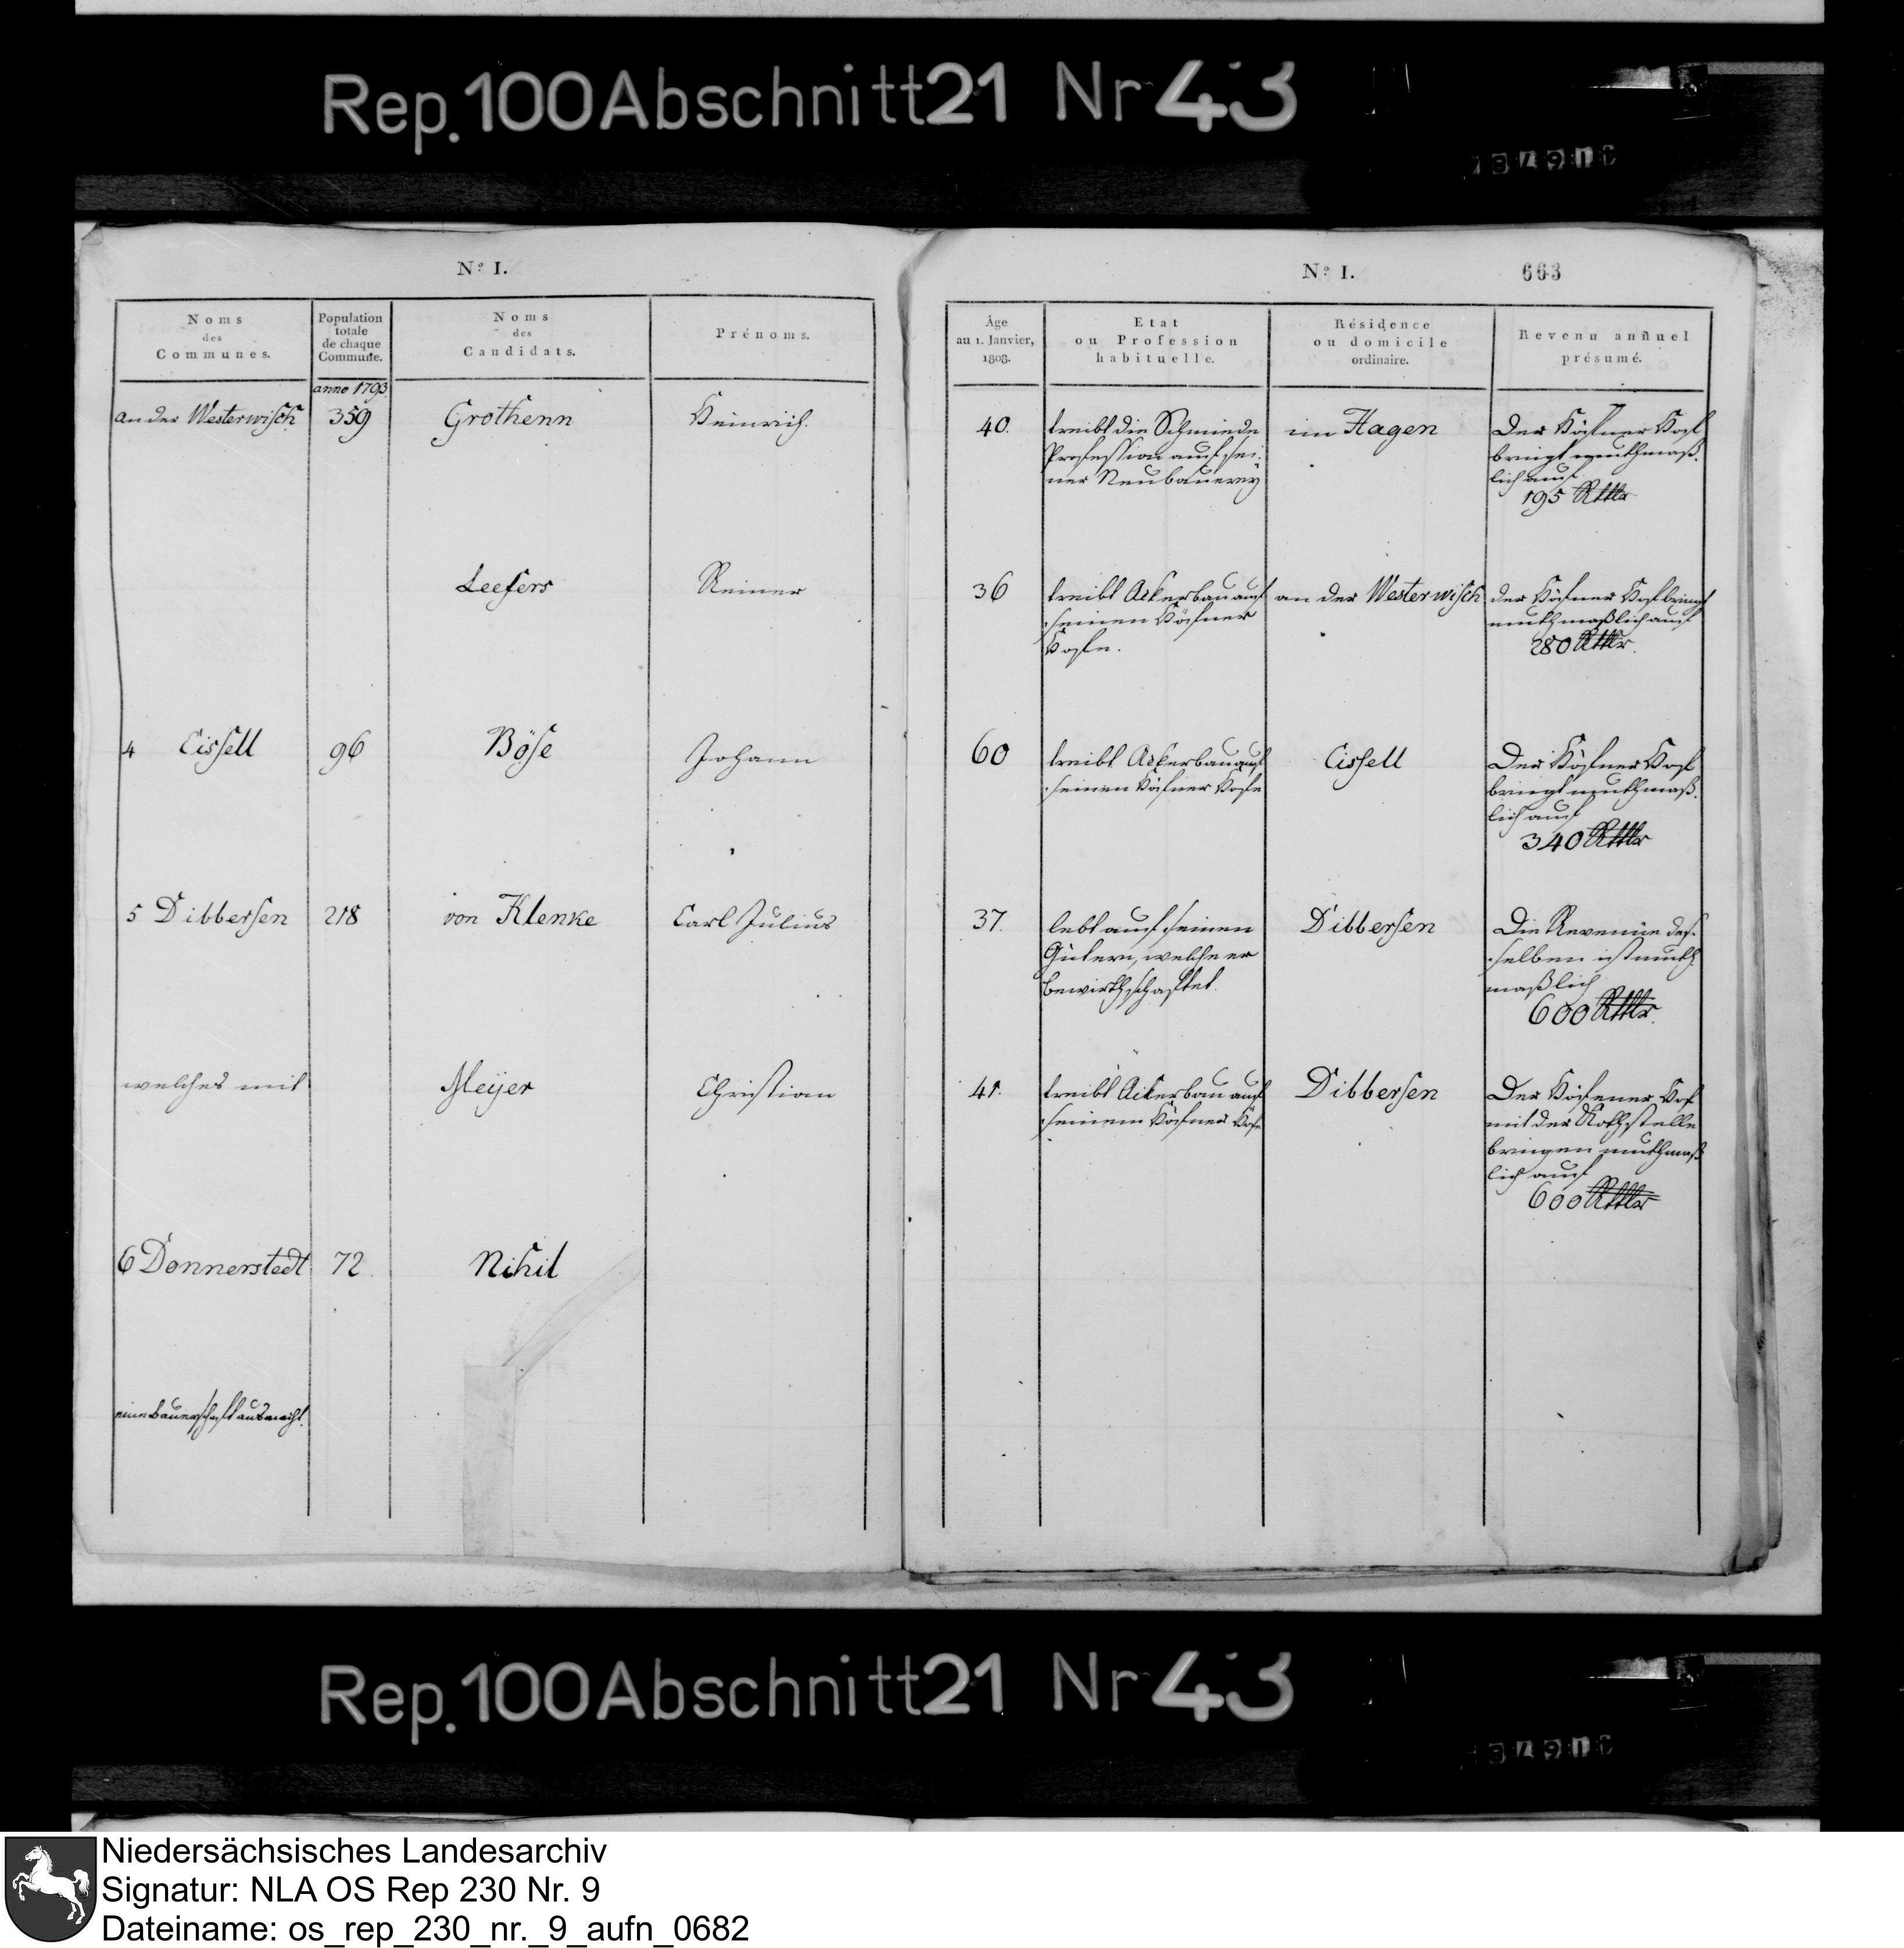 Rep.100Abschnitt21 Nr 43
34916
Nº I.
Noms
des
Communes.
Population
totale
de chaque
Commune.
Noms
des
Candidats.
Prénoms.
anno 1793
an der Westerwisch
359
Grothenn
Heinrich.
Leefers
Reiner
4 Eissell
96
Böse
Johann
5 Dibbersen
218
von Klenke
Carl Julius
welches mit
Meijer
Christian
6 Donnerstedt
72
Nihil
eine Bauerschaft ausmacht.
Nº I.
663
Âge
au 1. Janvier,
1808.
Etat
ou Profession
habituelle.
Résidence
ou domicile
ordinaire.
Revenu annuel
présumé.
40.
treibt die Schmiede
Profession auf sei-
ner Neubauerey
im Hagen
Der Höfner Hof
bringt muthmaß-
lich auf
195 Rthlr
36
treibt Ackerbau auf
seinen Höfner
Hofe.
an der Westerwisch
der Höfner Hof bringt
muthmaßlich auf
280 Rthlr.
60
treibt Ackerbau auf
seinen Höfner Hofe
Eissell
Der Höfner Hof
bringt muthmaß-
lich auf
340 Rthlr
37.
lebt auf seinen
Gütern, welche er
bewirthschaftet.
Dibbersen
Die Revenüe des-
selben ist muth-
maßlich
600 Rthlr.
41.
treibt Ackerbau auf
seinem Höfner Hofe
Dibbersen
Der Höfener Hof
mit der Kothstelle
bringen muthmaß-
lich auf
600 Rthlr
Rep.100Abschnitt21 Nr 43
34916
Niedersächsisches Landesarchiv
Signatur: NLA OS Rep 230 Nr. 9
Dateiname: os_rep_230_nr._9_aufn_0682